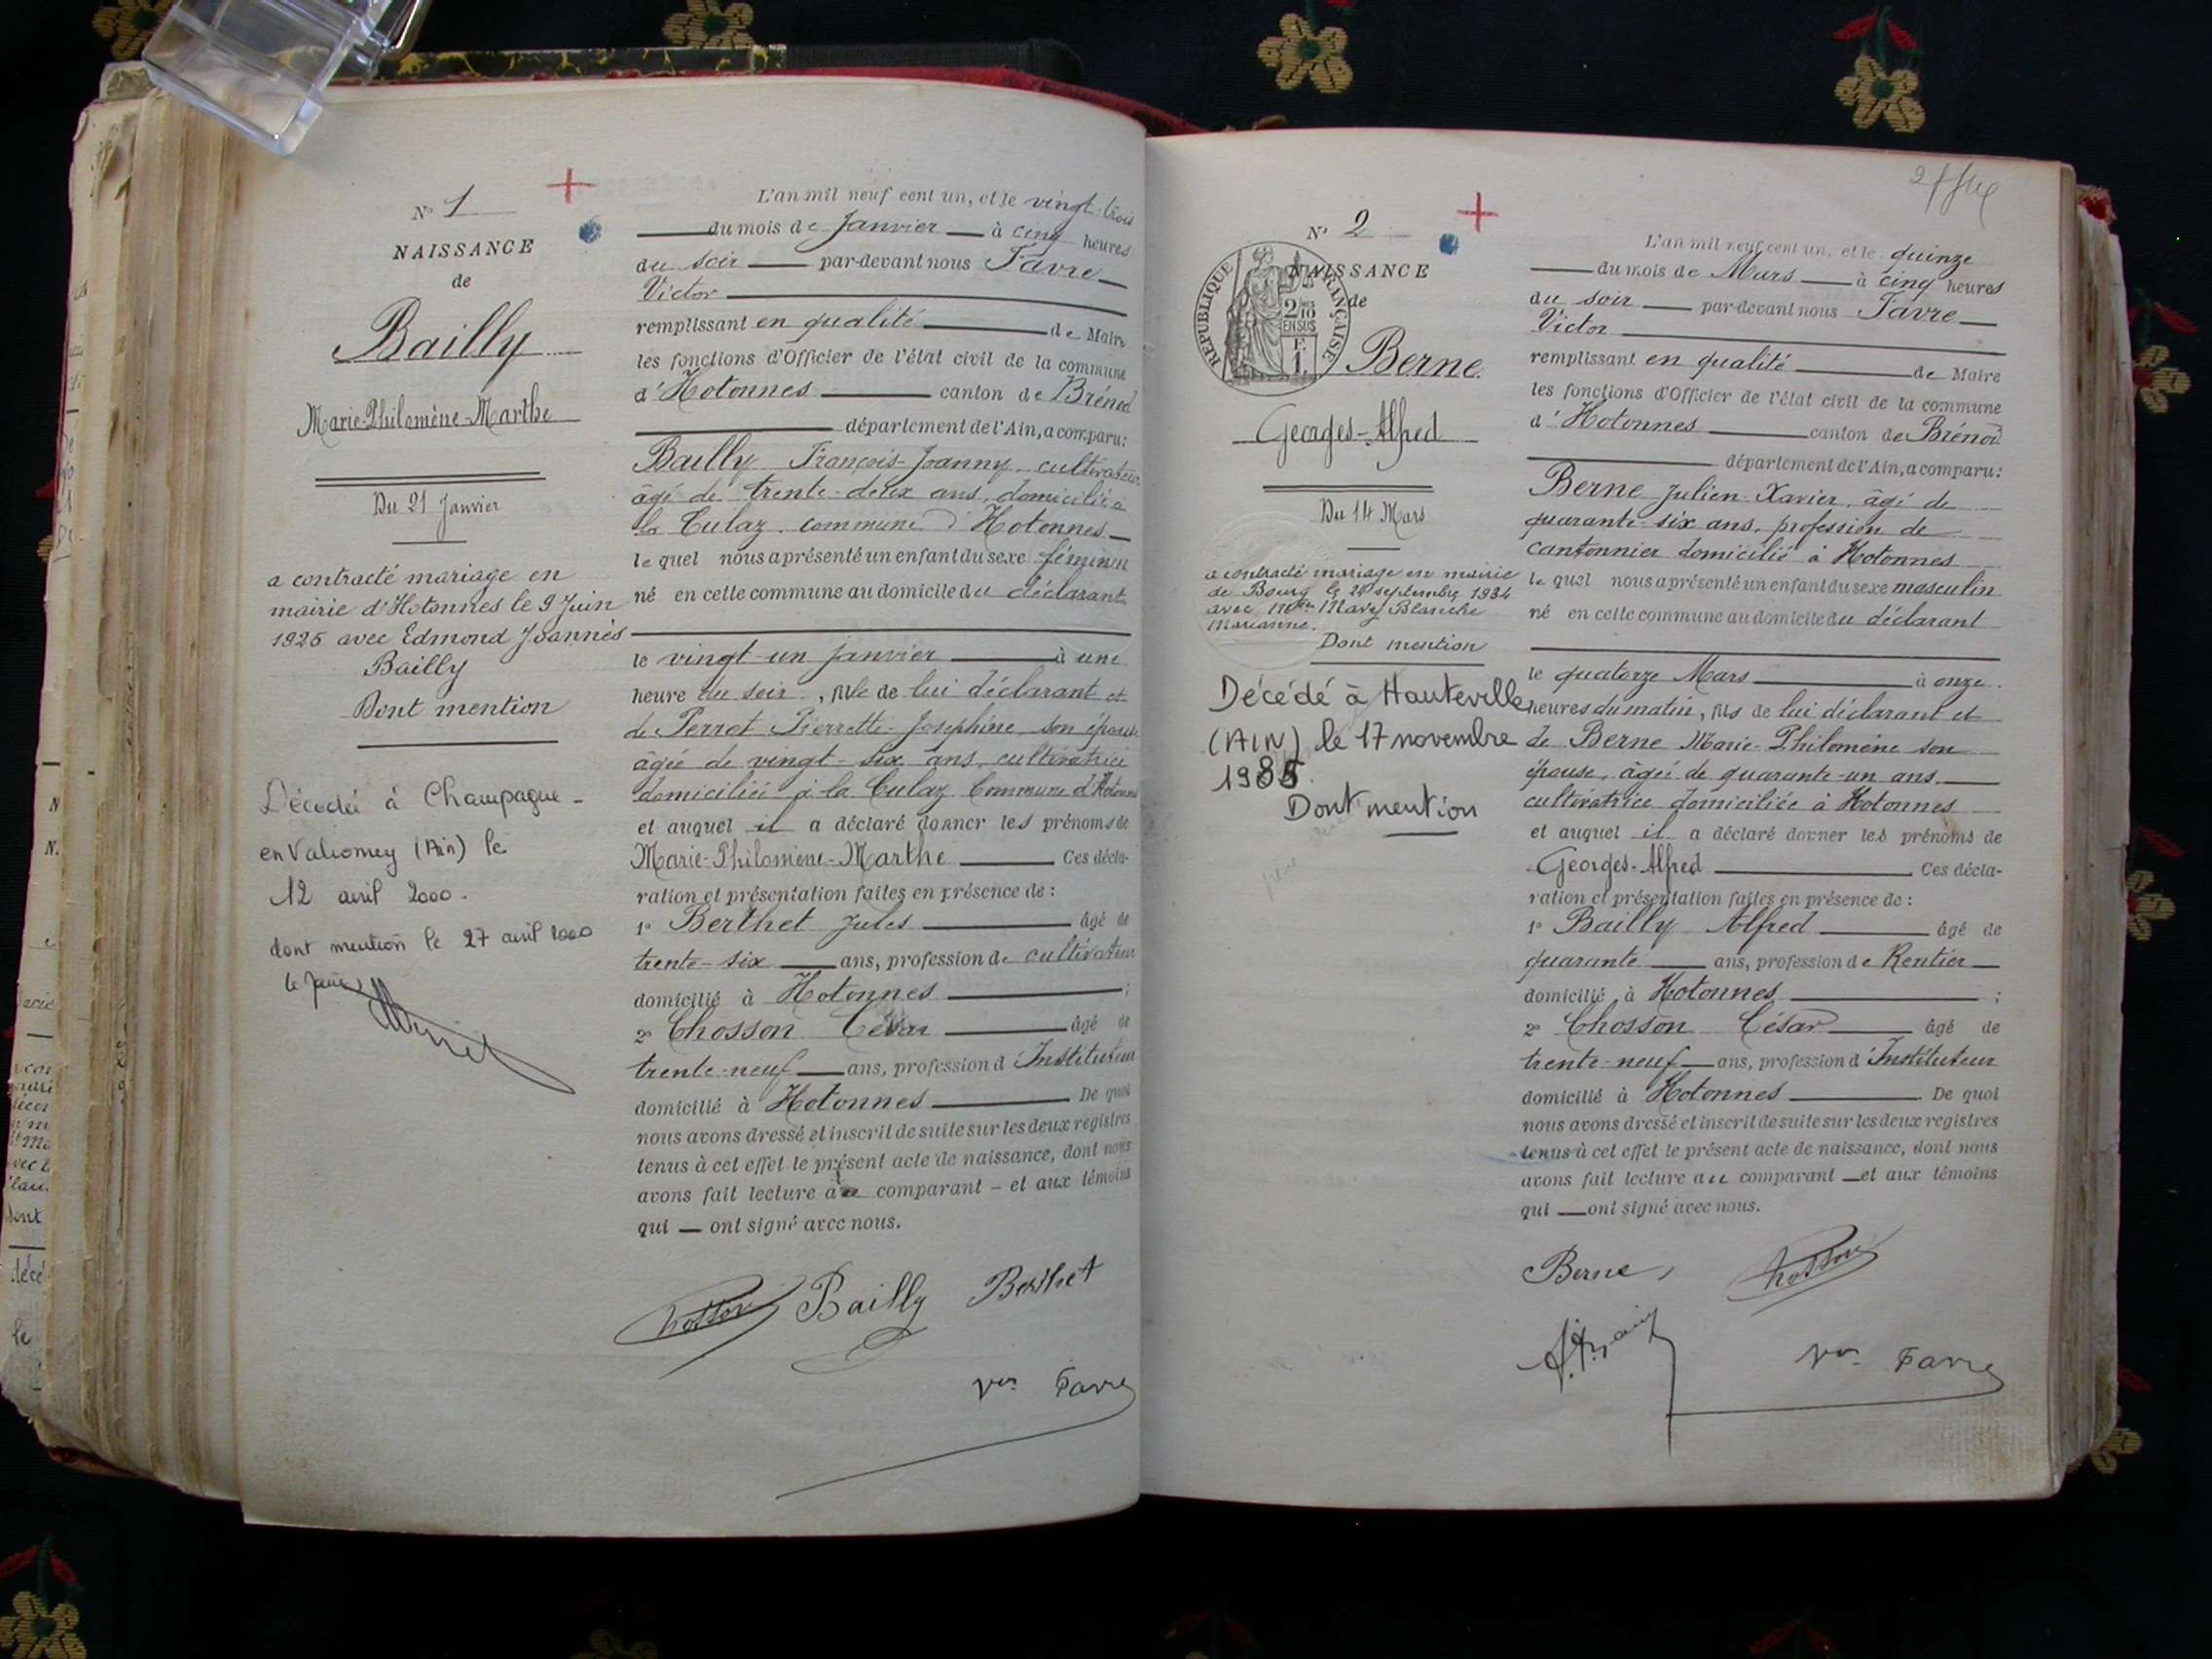 N° 1
NAISSANCE
de
Bailly
Marie-Philomène-Marthe
Du 21 Janvier
a contracté mariage en
mairie d'Hotonnes le 9 Juin
1925 avec Edmond Joannès
Bailly
Dont mention
Décédée à Champagne-
en Valromey (Ain) le
12 avril 2000.
dont mention le 27 avril 2000
L'an mil neuf cent un, et le vingt-trois
du mois de Janvier à cinq heures
du soir par-devant nous Favre
Victor
remplissant en qualité de Maire
les fonctions d'Officier de l'état civil de la commune
d'Hotonnes canton de Brénod
département de l'Ain, a comparu:
Bailly François-Joanny, cultivateur
âgé de trente-deux ans, domicilié à
la Culaz commune d'Hotonnes
lequel nous a présenté un enfant du sexe féminin
né en cette commune au domicile du déclarant
le vingt-un janvier à une
heure du soir, fille de lui déclarant et
de Perrot Pierrette-Joséphine, son épouse
âgée de vingt-six ans, cultivatrice
domiciliée à la Culaz Commune d'Hotonnes
et auquel il a déclaré donner les prénoms de
Marie-Philomène-Marthe Ces décla-
ration et présentation faites en présence de :
1° Berthet Jules âgé de
trente-six ans, profession de cultivateur
domicilié à Hotonnes ;
2° Chosson César âgé de
trente-neuf ans, profession d'Instituteur
domicilié à Hotonnes De quoi
nous avons dressé et inscrit de suite sur les deux registres
tenus à cet effet le présent acte de naissance, dont nous
avons fait lecture au comparant – et aux témoins
qui — ont signé avec nous.
Chosson Bailly Berthet
Vor Favre
N° 2
RÉPUBLIQUE FRANÇAISE
2/10 EN SUS
F. 1.
NAISSANCE
de
Berne
Georges-Alfred
Du 14 Mars
a contracté mariage en mairie
de Bourg le septembre 1934
avec Mary Blanche
Marianne.
Dont mention
Décédé à Hauteville
(AIN) le 17 novembre
1985.
Dont mention
L'an mil neuf cent un, et le quinze
du mois de Mars à cinq heures
du soir par-devant nous Favre
Victor
remplissant en qualité de Maire
les fonctions d'Officier de l'état civil de la commune
d'Hotonnes canton de Brénod
département de l'Ain, a comparu:
Berne Julien-Xavier, âgé de
quarante-six ans, profession de
cantonnier domicilié à Hotonnes
lequel nous a présenté un enfant du sexe masculin
né en cette commune au domicile du déclarant
le quatorze Mars à onze
heures du matin, fils de lui déclarant et
de Berne Marie-Philomène son
épouse, âgée de quarante-un ans,
cultivatrice domiciliée à Hotonnes
et auquel il a déclaré donner les prénoms de
Georges-Alfred Ces décla-
ration et présentation faites en présence de :
1° Bailly Alfred âgé de
quarante ans, profession de Rentier
domicilié à Hotonnes ;
2° Chosson César âgé de
trente-neuf ans, profession d'Instituteur
domicilié à Hotonnes De quoi
nous avons dressé et inscrit de suite sur les deux registres
tenus à cet effet le présent acte de naissance, dont nous
avons fait lecture au comparant — et aux témoins
qui — ont signé avec nous.
Berne, Chosson
Vor Favre